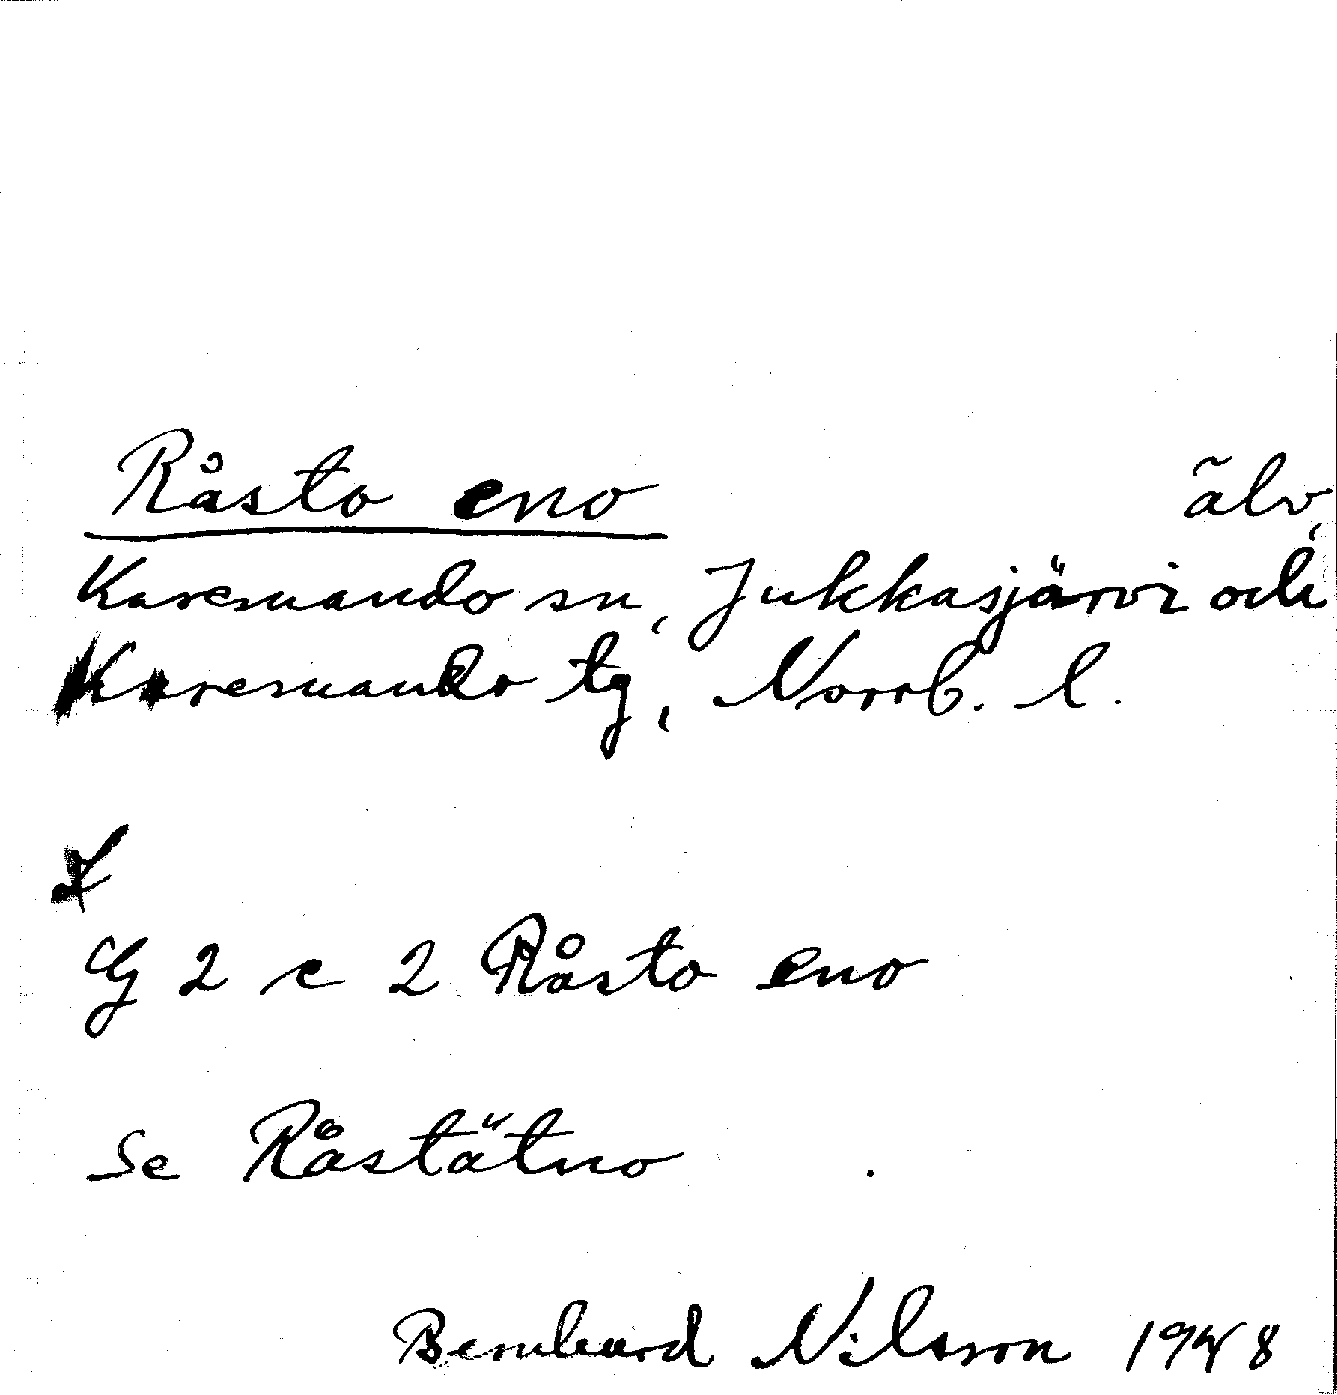 Råsto eno älv,
Karesuando sn, Jukkasjärvi och
Karesuando tg, Norrb. l.
G 2 c 2 Råsto eno
Se Råstätno
Bernhard Nilsson 1948